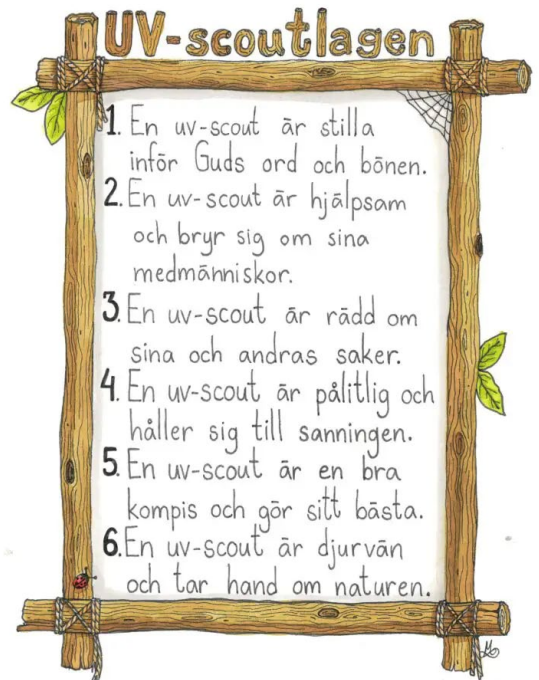 UV-scoutlagen
1. En uv-scout är stilla
inför Guds ord och bönen.
2. En uv-scout är hjälpsam
och bryr sig om sina
medmänniskor.
3. En uv-scout är rädd om
sina och andras saker.
4. En uv-scout är pålitlig och
håller sig till sanningen.
5. En uv-scout är en bra
kompis och gör sitt bästa.
6. En uv-scout är djurvän
och tar hand om naturen.